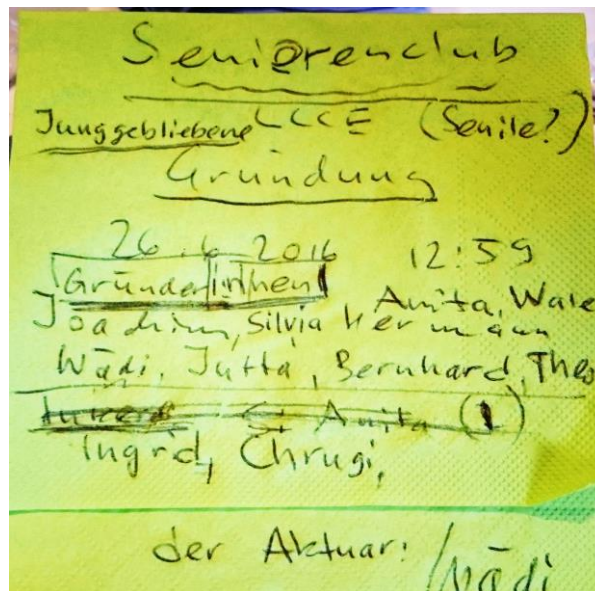 Seniorenclub
Junggebliebene LCCE (Senile?)
Gründung
26.6 2016 12:59
Gründer/innen
Anita, Wale
Joachim, Silvia Hermann
Wädi, Jutta, Bernhard, Theo
Anita (1)
Ingrid, Chrugi,
der Aktuar: Wädi